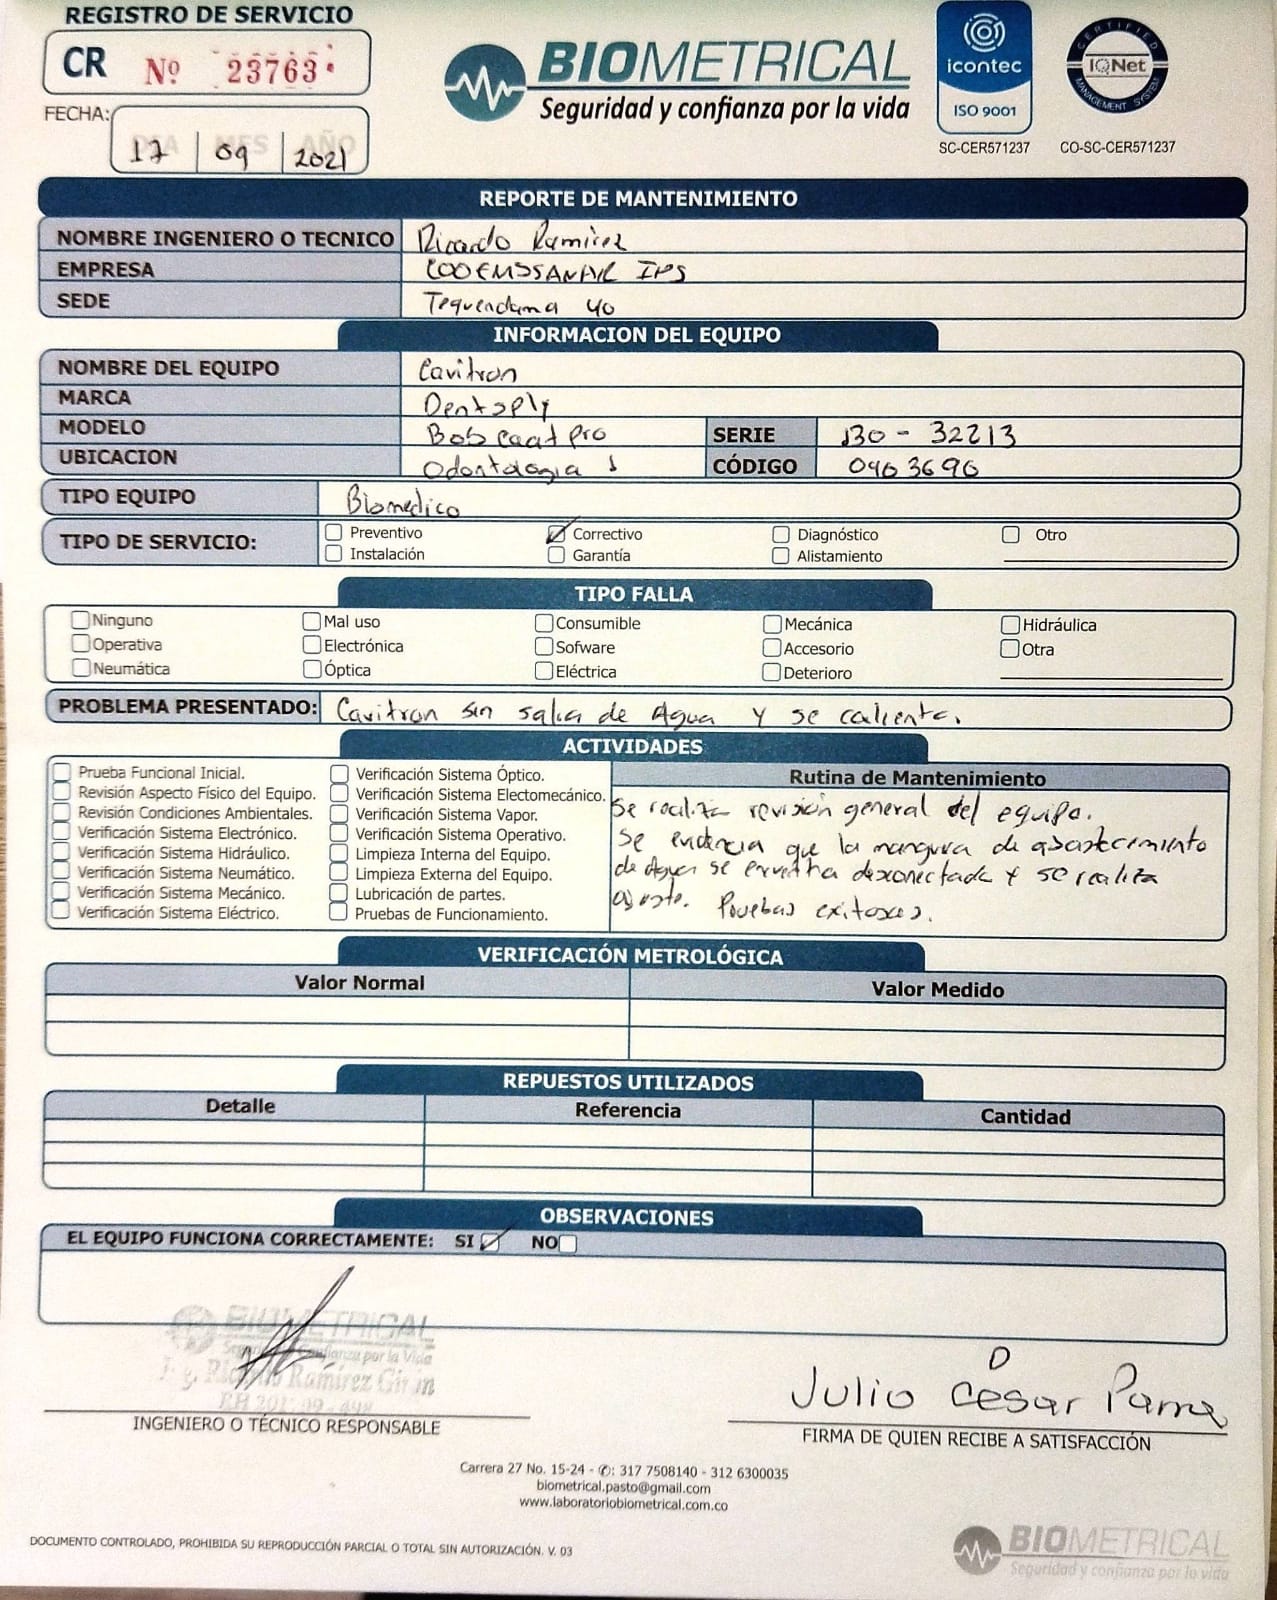 REGISTRO DE SERVICIO
CR Nº 23763
FECHA:
DIA MES AÑO
17 09 2021
BIOMETRICAL
Seguridad y confianza por la vida
icontec
ISO 9001
SC-CER571237
CERTIFIED
IQNet
MANAGEMENT SYSTEM
CO-SC-CER571237
REPORTE DE MANTENIMIENTO
NOMBRE INGENIERO O TECNICO Ricardo Ramirez
EMPRESA COOEMSSANAR IPS
SEDE Tequendama 40
INFORMACION DEL EQUIPO
NOMBRE DEL EQUIPO Cavitron
MARCA Dentsply
MODELO Bobcaat pro SERIE 130 - 32213
UBICACION Odontologia 1 CÓDIGO 0403696
TIPO EQUIPO Biomedico
TIPO DE SERVICIO:
Preventivo Correctivo Diagnóstico Otro
Instalación Garantía Alistamiento
TIPO FALLA
Ninguno Mal uso Consumible Mecánica Hidráulica
Operativa Electrónica Sofware Accesorio Otra
Neumática Óptica Eléctrica Deterioro
PROBLEMA PRESENTADO: Cavitron sin salia de Agua y se calienta.
ACTIVIDADES
Prueba Funcional Inicial.
Revisión Aspecto Físico del Equipo.
Revisión Condiciones Ambientales.
Verificación Sistema Electrónico.
Verificación Sistema Hidráulico.
Verificación Sistema Neumático.
Verificación Sistema Mecánico.
Verificación Sistema Eléctrico.
Verificación Sistema Óptico.
Verificación Sistema Electomecánico.
Verificación Sistema Vapor.
Verificación Sistema Operativo.
Limpieza Interna del Equipo.
Limpieza Externa del Equipo.
Lubricación de partes.
Pruebas de Funcionamiento.
Rutina de Mantenimiento
Se realiza revisión general del equipo.
Se evidencia que la manguera de abastecimiento
de Agua se encuentra desconectada y se realiza
ajuste. Pruebas exitosas.
VERIFICACIÓN METROLÓGICA
Valor Normal Valor Medido
REPUESTOS UTILIZADOS
Detalle Referencia Cantidad
OBSERVACIONES
EL EQUIPO FUNCIONA CORRECTAMENTE: SI NO
BIOMETRICAL
Seguridad y Confianza por la Vida
Ing. Ricardo Ramírez
INGENIERO O TÉCNICO RESPONSABLE
Julio Cesar Parra
FIRMA DE QUIEN RECIBE A SATISFACCIÓN
Carrera 27 No. 15-24 - ✆: 317 7508140 - 312 6300035
biometrical.pasto@gmail.com
www.laboratoriobiometrical.com.co
DOCUMENTO CONTROLADO, PROHIBIDA SU REPRODUCCIÓN PARCIAL O TOTAL SIN AUTORIZACIÓN. V. 03
BIOMETRICAL
Seguridad y confianza por la vida